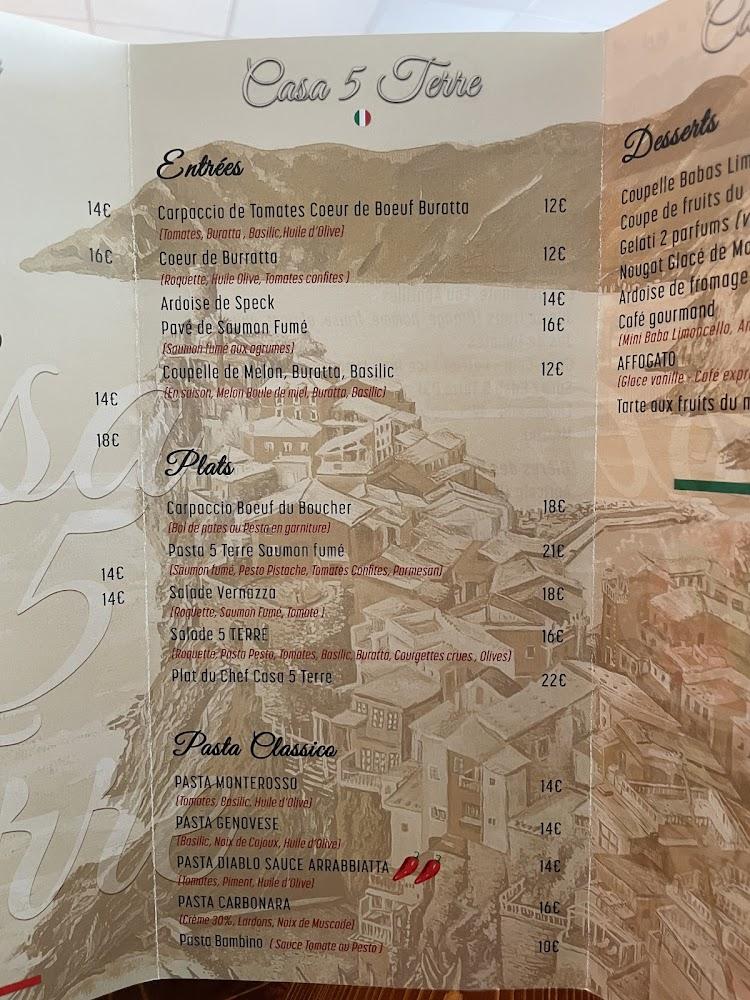 Casa 5 Terre
Entrées
Carpaccio de Tomates Coeur de Boeuf Buratta 12€
(Tomates, Buratta , Basilic,Huile d'Olive)
Coeur de Burratta 12€
(Roquette, Huile Olive, Tomates confites )
Ardoise de Speck 14€
Pavé de Saumon Fumé 16€
(Saumon fumé aux agrumes)
Coupelle de Melon, Buratta, Basilic 12€
(En saison, Melon Boule de miel, Buratta, Basilic)
Plats
Carpaccio Boeuf du Boucher 18€
(Bol de pates au Pesto en garniture)
Pasta 5 Terre Saumon fumé 21€
(Saumon fumé, Pesto Pistache, Tomates Confites, Parmesan)
Salade Vernazza 18€
(Roquette, Saumon Fumé, Tomate )
Salade 5 TERRE 16€
(Roquette, Pasta Pesto, Tomates, Basilic, Buratta, Courgettes crues , Olives)
Plat du Chef Casa 5 Terre 22€
Pasta Classico
PASTA MONTEROSSO 14€
(Tomates, Basilic, Huile d'Olive)
PASTA GENOVESE 14€
(Basilic, Noix de Cajoux, Huile d'Olive)
PASTA DIABLO SAUCE ARRABBIATTA 14€
(Tomates, Piment, Huile d'Olive)
PASTA CARBONARA 16€
(Crème 30%, Lardons, Noix de Muscade)
Pasta Bambino ( Sauce Tomate ou Pesto ) 10€
14€
16€
14€
18€
14€
14€
Desserts
Coupelle Babas Lim
Coupe de fruits du
Gelati 2 parfums (V
Nougat Glacé de Mo
Ardoise de fromage
Café gourmand
(Mini Baba Limoncello, Ar
AFFOGATO
(Glace vanille - Café expr
Tarte aux fruits du m